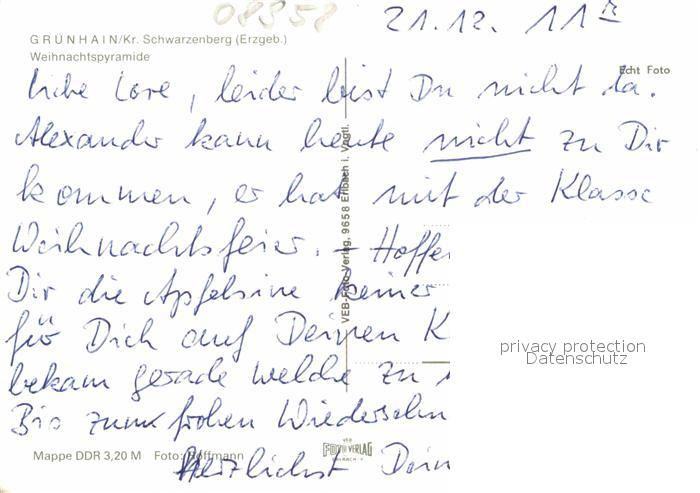 08358
21.12. 11
GRÜNHAIN/Kr. Schwarzenberg (Erzgeb.)
Weihnachtspyramide
Echt Foto
liebe Lore, leider bist Du nicht da.
Alexander kann heute nicht zu Dir
kommen, er hat mit der Klasse
Weihnachtsfeier. – Hoffe
Dir die Apfelsine
für Dich auf Deinen K
bekam gerade welche zu
Bis zum frohen Wiedersehn
Herzlichst Dein
VEB-Foto-Verlag, 9658 Erlbach i. Vogtl.
privacy protection
Datenschutz
Mappe DDR 3,20 M Foto: Hoffmann
VEB
FOTO VERLAG